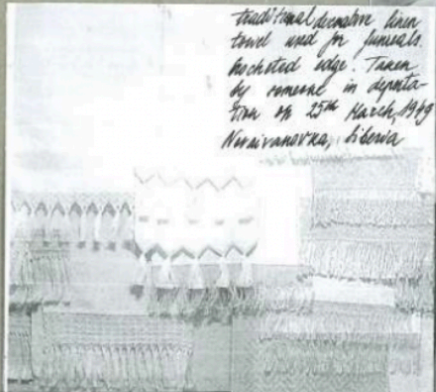 traditional decorative linen
towel used for funerals.
Crocheted edge. Taken
by someone in deporta-
tion on 25th March, 1949
Novoivanovka, Siberia